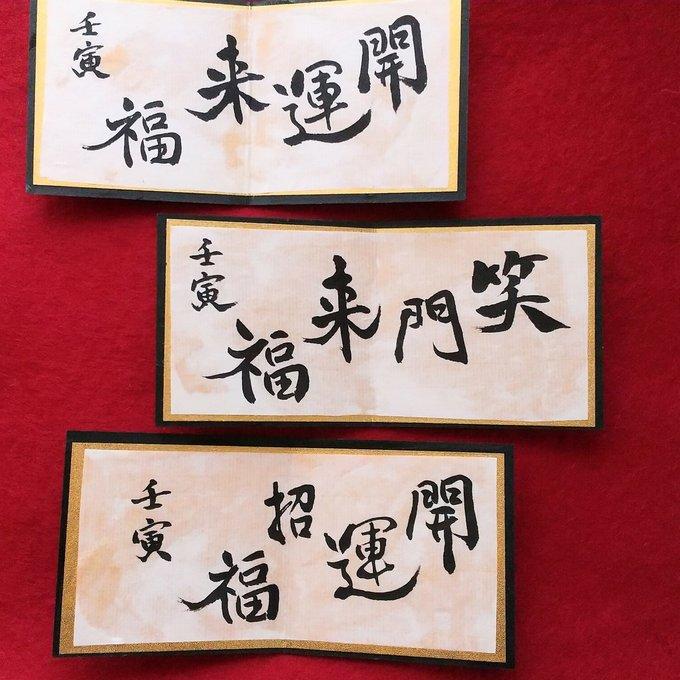 開運来福
壬寅
笑門来福
壬寅
開運招福
壬寅